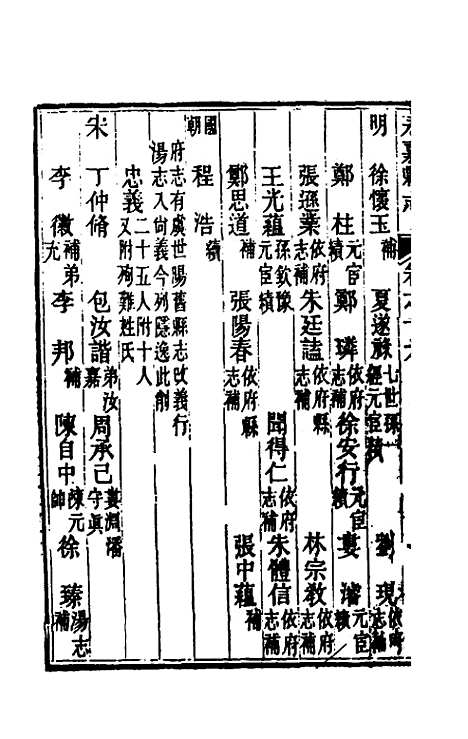 永嘉縣志 卷之十六
明 徐懷玉補 夏遂 七世孫一經元宦蹟 劉現依府志補
鄭柱元宦績 鄭璘依府志補 徐安行元宦績 婁濬元宦績
張遜業依府志補 朱廷諡依府縣志補 林宗教依府志補
王光蘊孫欽豫元宦績 聞得仁依府志補 朱體信依府志補
鄭思道補 張陽春依府縣志補 張中蘊補
國朝 程浩績
府志有虞世陽舊縣志改義行
湯志入尙義今列隱逸此削
忠義二十五人附十人又附殉難姓氏
宋 丁仲脩 包汝諧弟汝嘉 周承己婁淵潘守眞
李徽補弟充 李邦補 陳自中陳元帥 徐臻湯志補